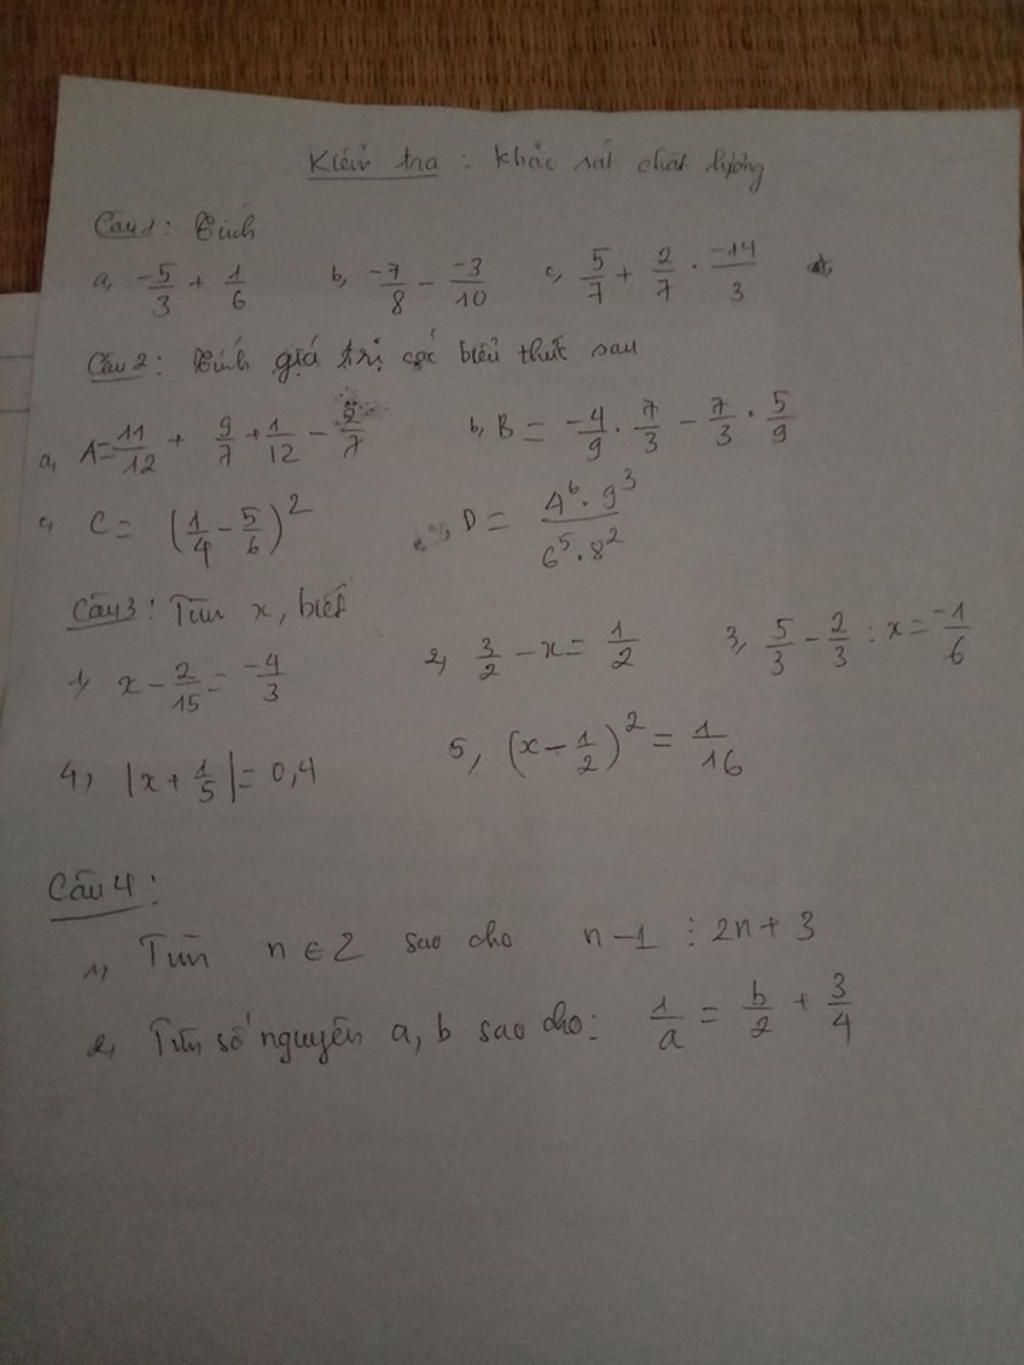 Kiểm tra : Khảo sát chất lượng
Câu 1 : Tính
a, -5/3 + 1/6 b, -7/8 - -3/10 c, 5/7 + 2/7 . -14/3
Câu 2 : Tính giá trị các biểu thức sau
a, A = 11/12 + 9/7 + 1/12 - 2/7 b, B = -4/9 . 7/3 - 7/3 . 5/9
c, C = (1/4 - 5/6)² , D = 4⁶ . 9³ / 6⁵ . 8²
Câu 3 : Tìm x, biết
1, x - 2/15 = -4/3 2, 3/2 - x = 1/2 3, 5/3 - 2/3 : x = -1/6
4, |x + 1/5| = 0,4 5, (x - 1/2)² = 1/16
Câu 4 :
1, Tìm n ∈ Z sao cho n - 1 ⋮ 2n + 3
2, Tìm số nguyên a, b sao cho : 1/a = b/2 + 3/4